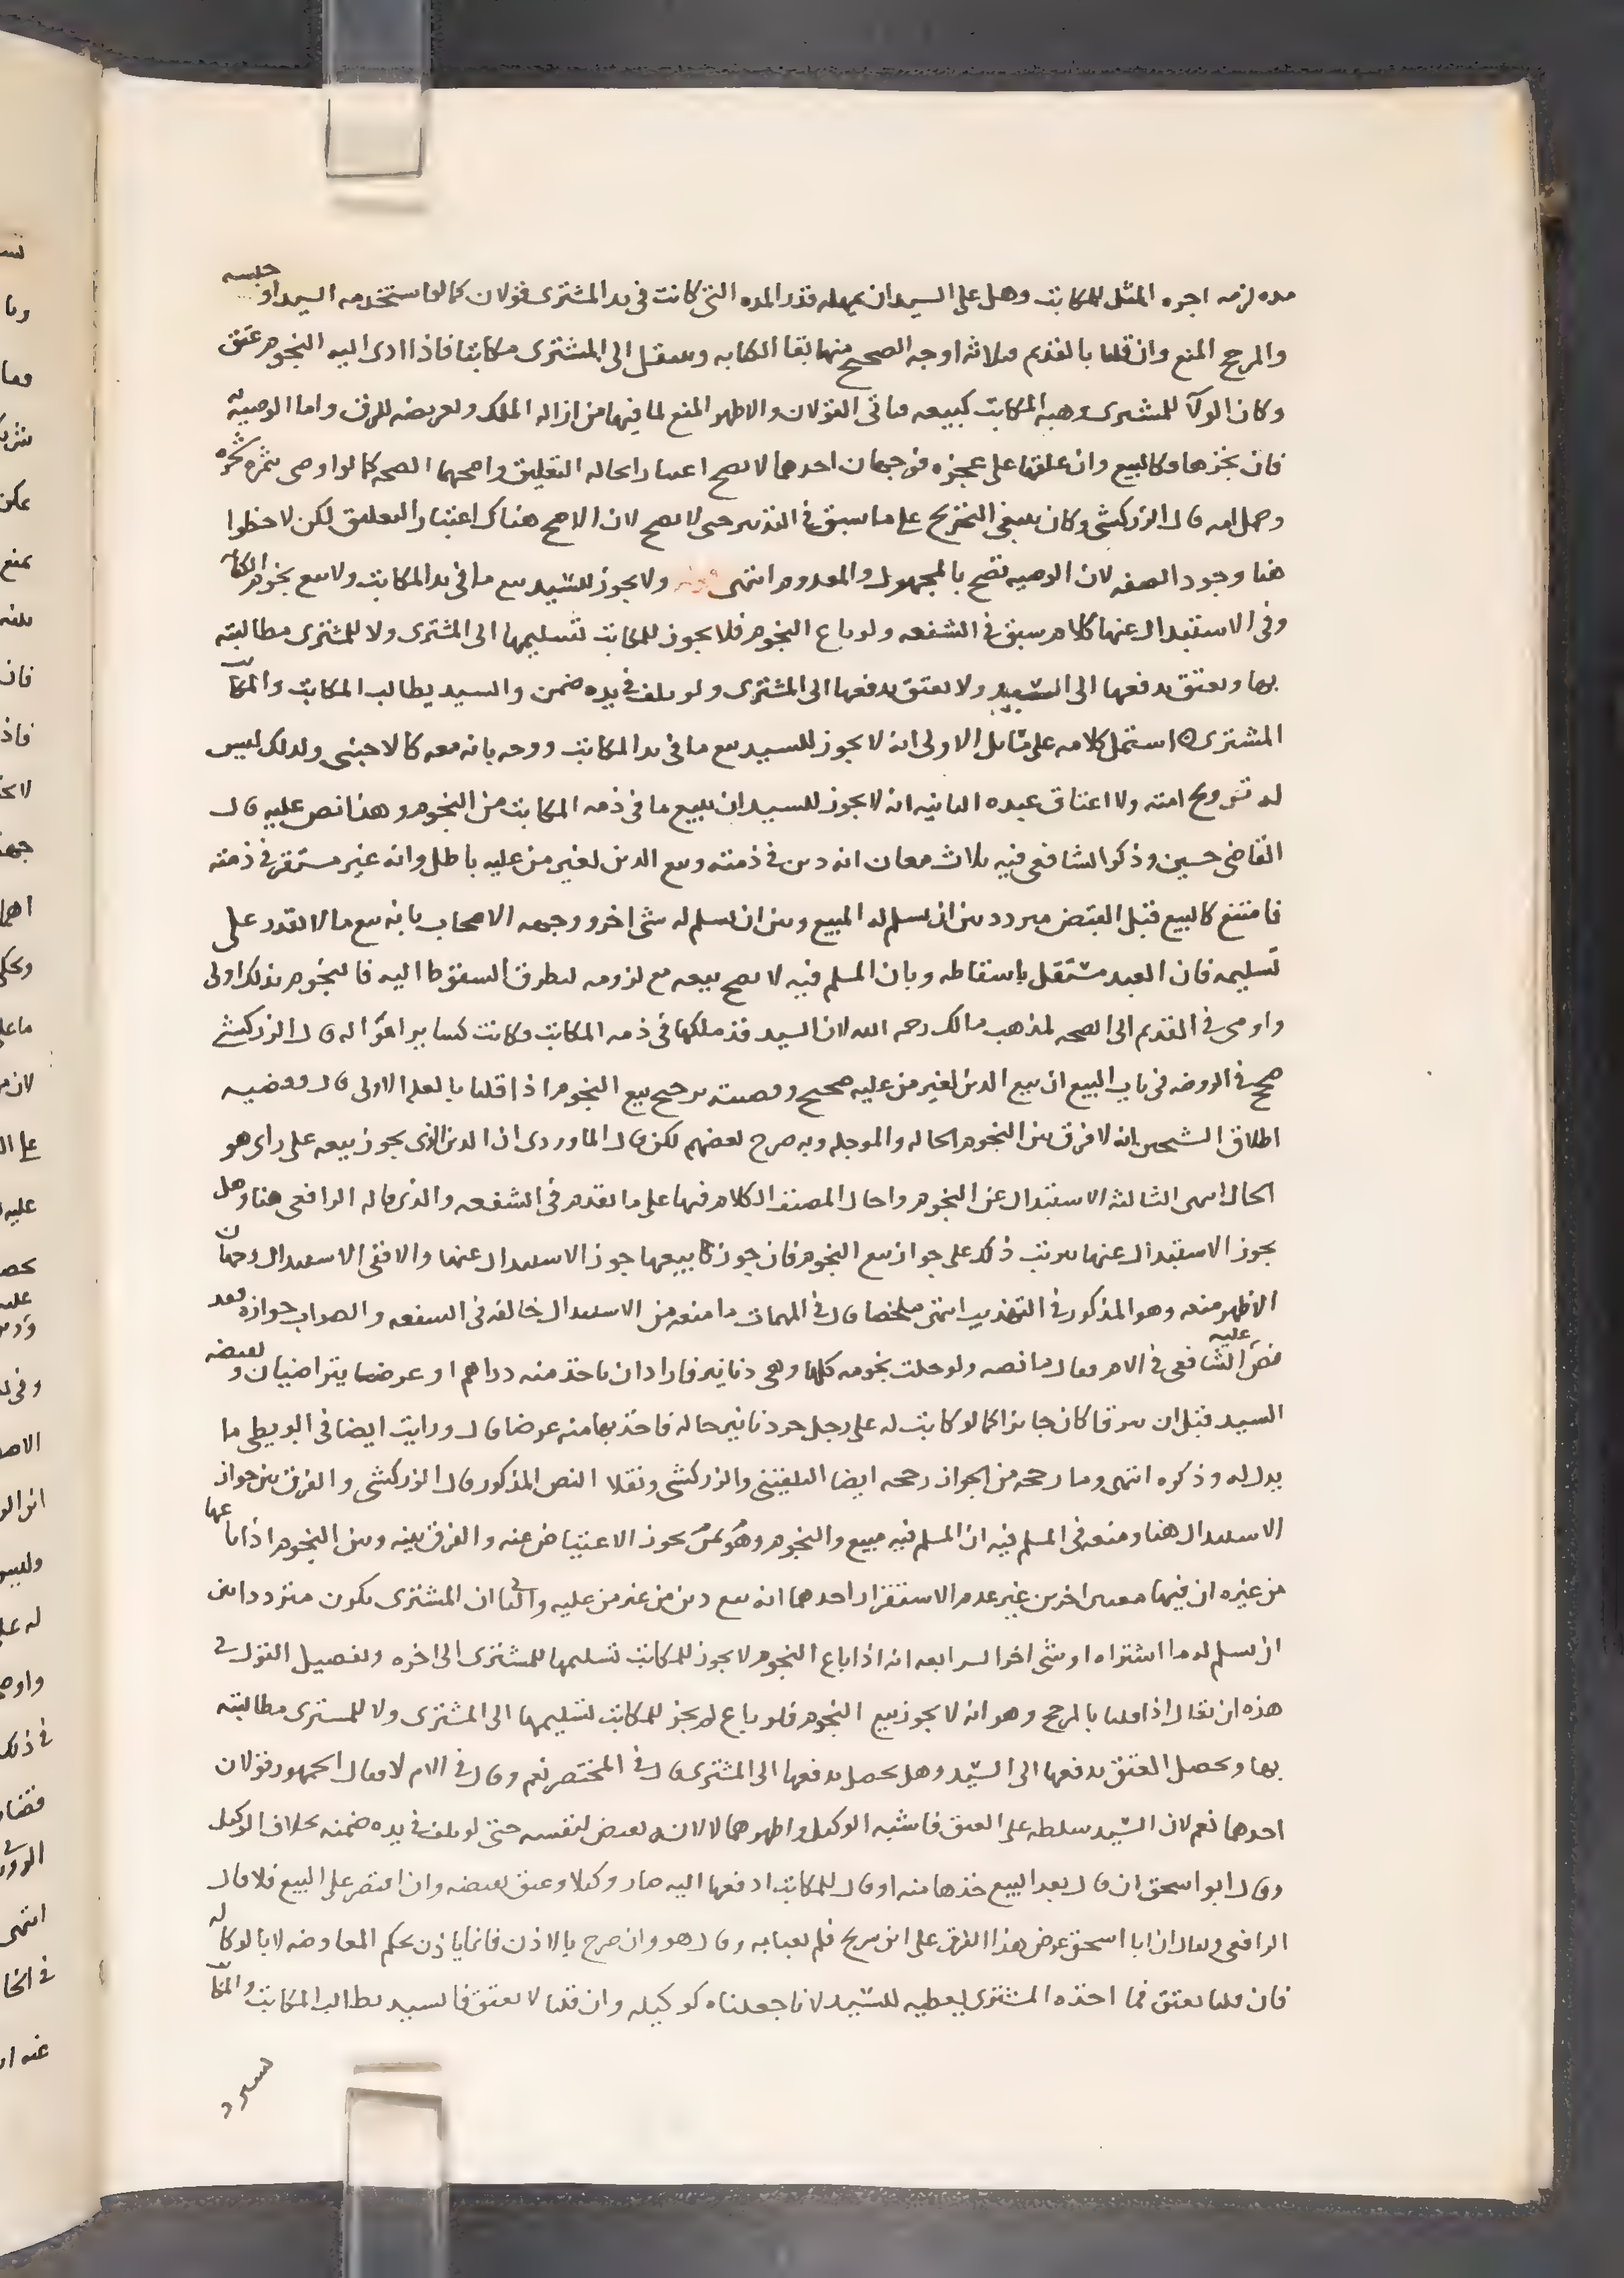 مده لزمه اجره المثل للمكاتب وهل على السيد ان يمهله قدر المده التى كانت فى يد المشترى قولان كما لو استخدمه السيد او حبسه
والمرجح المنع وان قلنا بالقديم فثلاثه اوجه الصحيح منها بقا الكتابه وينتقل الى المشترى مكاتبا فاذا ادى اليه النجوم عتق
وكان الولآ للمشترى وهبه المكاتب كبيعه فياتى القولان والاظهر المنع لما فيها من ازاله الملك وتعريضه للرق واما الوصيه به
فان نجزها فكالبيع وان علقها على عجزه فوجهان احدهما لا تصح اعتبارا بحاله التعليق واصحهما الصحه كما لو اوصى بثمره شجره
وحمل امه قال الزركشى وكان ينبغى التخريج على ما سبق فى التدبير حتى لا يصح لان الاصح هناك اعتبار التعليق لكن لاحظوا
هنا وجود الصفه لان الوصيه تصح بالمجهول والمعدوم انتهى ولا يجوز للسيد بيع ما فى يد المكاتب ولا بيع نجوم الكتابه
وفى الاستبدال عنها كلام سبق فى الشفعه ولو باع النجوم فلا يجوز للمكاتب تسليمها الى المشترى ولا للمشترى مطالبته
بها ويعتق بدفعها الى السيد ولا يعتق بدفعها الى المشترى ولو تلف فى يده ضمن والسيد يطالب المكاتب والمكاتب
المشترى اشتمل كلامه على مسايل الاولى انه لا يجوز للسيد بيع ما فى يد المكاتب ووجه بانه معه كالاجنبى ولذلك ليس
له تزويج امته ولا اعتاق عبده الثانيه انه لا يجوز للسيد ان يبيع ما فى ذمه المكاتب من النجوم وهذا نص عليه قال
القاضى حسين وذكر الشافعى فيه ثلاث معان انه دين فى ذمته وبيع الدين لغير من عليه باطل وانه غير مستقر فى ذمته
فامتنع كالبيع قبل القبض متردد بين ان يسلم له المبيع وبين ان يسلم له شى اخر ووجهه الاصحاب بانه بيع ما لا يقدر على
تسليمه فان العبد مستقل باسقاطه وبان المسلم فيه لا يصح بيعه مع لزومه لتطرق السقوط اليه فالنجوم بذلك اولى
واومى فى القديم الى الصحه لمذهب مالك رحمه الله لان السيد قد ملكها فى ذمه المكاتب وكانت كساير امواله قال الزركشى
صحح فى الروضه فى باب البيع ان بيع الدين لغير من عليه صحيح وقضيته ترجيح بيع النجوم اذا قلنا بالعله الاولى قال وقضيه
اطلاق الشيخين انه لا فرق بين النجوم الحاله والموجله وبه صرح بعضهم لكن قال الماوردى ان الدين الذى يجوز بيعه على راى هو
الحال انتهى الثالثه الاستبدال عن النجوم واحال المصنف الكلام فيها على ما تقدم فى الشفعه والذى قاله الرافعى هنا وهل
يجوز الاستبدال عنها يترتب ذلك على جواز بيع النجوم فان جوزنا بيعها جوز الاستبدال عنها والا ففى الاستبدال وجهان
الاظهر منعه وهو المذكور فى التهذيب انتهى ملخصا قال فى المهمات ما منعه من الاستبدال خالفه فى الشفعه والصواب جوازه فقد
نص عليه الشافعى فى الام فقال ما نصه ولو حلت نجومه كلها وهى دنانير فاراد ان ياخذ منه دراهم او عرضا يتراضيان ويقبضه
السيد قبل ان يتفرقا كان جائزا كما لو كانت له على رجل حر دنانير حاله فاخذ بها منه عرضا قال ورايت ايضا فى البويطى ما
يدل له وذكره انتهى وما رجحه من الجواز رجحه ايضا البلقينى والزركشى ونقلا النص المذكور قال الزركشى والفرق بين جواز
الاستبدال هنا ومنعه فى المسلم فيه ان المسلم فيه مبيع والنجوم وهو ثمن يجوز الاعتياض عنه والفرق بينه وبين النجوم اذا باعها
من غيره ان فيها معنيين اخرين غير عدم الاستقرار احدهما انه بيع دين من غير من عليه والثانى ان المشترى يكون مترددا بين
ان يسلم له ما اشتراه او شى اخر الرابعه انه اذا باع النجوم لا يجوز للمكاتب تسليمها للمشترى الى اخره وتفصيل القول فى
هذه ان يقال اذا قلنا بالمرجح وهو انه لا يجوز بيع النجوم فلو باع لم يجز للمكاتب تسليمها الى المشترى ولا للمشترى مطالبته
بها ويحصل العتق بدفعها الى السيد وهل يحصل بدفعها الى المشترى قال فى المختصر نعم وقال فى الام لا فقال الجمهور قولان
احدهما نعم لان السيد سلطه على العتق فاشبه الوكيل واظهرهما لا لانه يقبض لنفسه حتى لو تلف فى يده ضمنه بخلاف الوكيل
وقال ابو اسحق ان قال بعد البيع خذها منه او قال للمكاتب ادفعها اليه صار وكيلا وعتق بقبضه وان اقتصر على البيع فلا قال
الرافعى ويقال ان ابا اسحق عرض هذا الفرق على ابن سريج فلم يعبا به وقال هو وان صرح بالاذن فانما ياذن بحكم المعاوضه لا بالوكاله
فان قلنا يعتق فما اخذه المشترى يعطيه للسيد لانا جعلناه كوكيله وان قلنا لا يعتق فالسيد يطالب المكاتب والمكاتب
يسترد